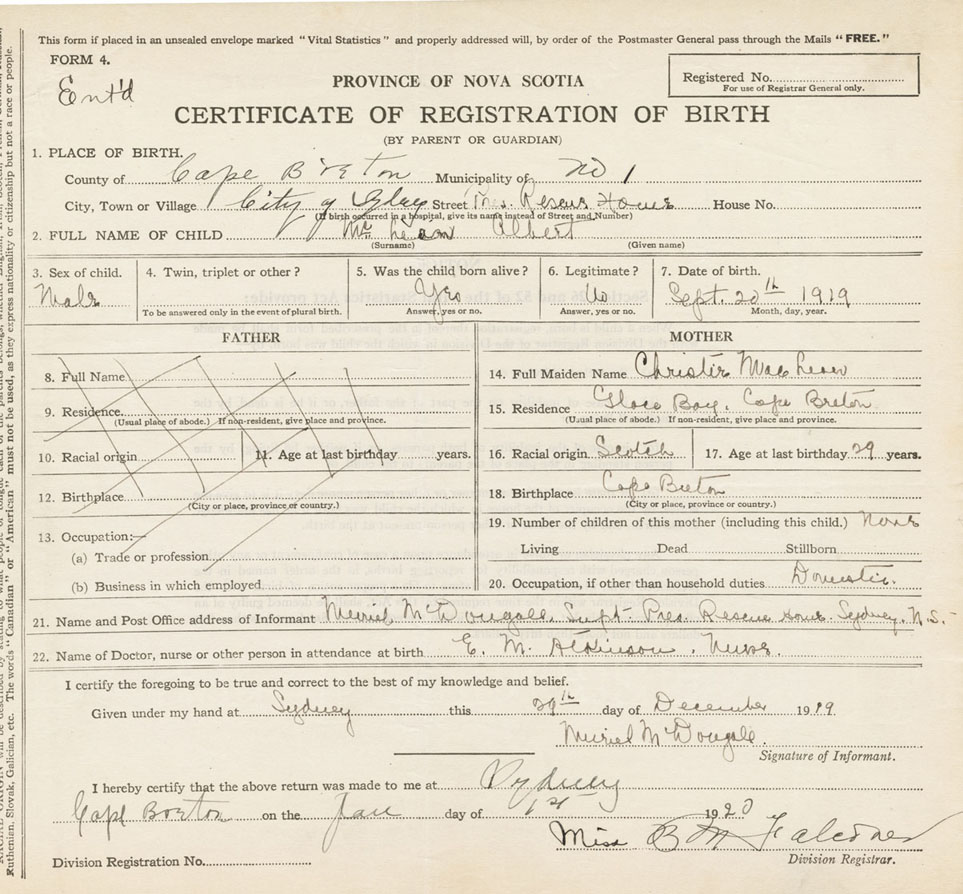 This form if placed in an unsealed envelope marked "Vital Statistics" and properly addressed will, by order of the Postmaster General pass through the Mails "FREE."
FORM 4.
Ent'd
PROVINCE OF NOVA SCOTIA
Registered No.
For use of Registrar General only.
CERTIFICATE OF REGISTRATION OF BIRTH
(BY PARENT OR GUARDIAN)
1. PLACE OF BIRTH.
County of Cape Breton Municipality of No 1
City, Town or Village City of Sydney Street Pres. Rescue Home House No.
(If birth occurred in a hospital, give its name instead of Street and Number)
2. FULL NAME OF CHILD McLean Albert
(Surname) (Given name)
3. Sex of child. 4. Twin, triplet or other? 5. Was the child born alive? 6. Legitimate? 7. Date of birth.
Male Yes No Sept. 20th 1919
To be answered only in the event of plural birth. Answer, yes or no. Answer, yes or no. Month, day, year.
FATHER
8. Full Name
9. Residence
(Usual place of abode.) If non-resident, give place and province.
10. Racial origin 11. Age at last birthday years.
12. Birthplace
(City or place, province or country.)
13. Occupation:—
(a) Trade or profession
(b) Business in which employed
MOTHER
14. Full Maiden Name Christie MacLean
15. Residence Glace Bay, Cape Breton
(Usual place of abode.) If non-resident, give place and province.
16. Racial origin Scotch 17. Age at last birthday 29 years.
18. Birthplace Cape Breton
(City or place, province or country.)
19. Number of children of this mother (including this child.) None
Living Dead Stillborn
20. Occupation, if other than household duties Domestic.
21. Name and Post Office address of Informant Muriel McDougall, Supt. Pres. Rescue Home. Sydney, N.S.
22. Name of Doctor, nurse or other person in attendance at birth E. M. Atkinson, Nurse.
I certify the foregoing to be true and correct to the best of my knowledge and belief.
Given under my hand at Sydney this 29th day of December 1919.
Muriel McDougall.
Signature of Informant.
I hereby certify that the above return was made to me at Sydney
Cape Breton on the Jan day of 1st 1920
Miss B M Falconer
Division Registrar.
Division Registration No.